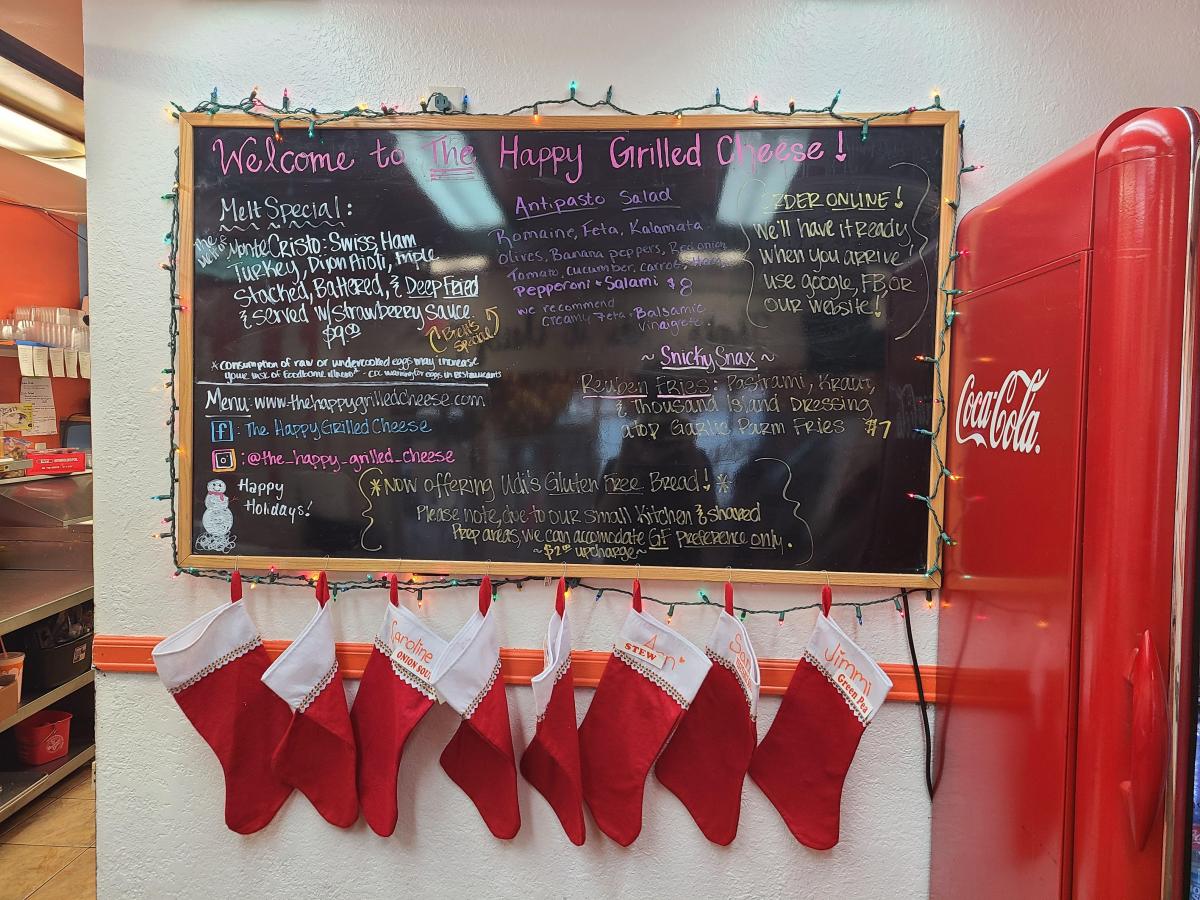 Welcome to The Happy Grilled Cheese!
Melt Special:
Monte Cristo: Swiss, Ham
Turkey, Dijon Aioli, Triple
Stacked, Battered, & Deep Fried
& served w/strawberry sauce.
$9.00
Bren's
Special
*consumption of raw or undercooked eggs may increase
your risk of foodborne illness - CDC warning for eggs in restaurants
Menu: www.thehappygrilledcheese.com
f : The Happy Grilled Cheese
:@the_happy_grilled_cheese
Happy
Holidays!
Antipasto Salad
Romaine, Feta, Kalamata
olives, Banana peppers, Red onion
Tomato, cucumber, carrots,
Pepperoni + Salami $8
we recommend
creamy Feta + Balsamic
vinaigrete
RDER ONLINE!
We'll have it Ready
when you arrive!
use google, FB, or
our website!
~ Snicky Snax ~
Reuben Fries: Pastrami, Kraut,
& Thousand Island Dressing
atop Garlic Parm Fries $7
*Now offering Udi's Gluten Free Bread! *
Please note, due to our small kitchen & shared
Prep areas, we can accomodate GF Preference only.
~$2.00 upcharge~
Caroline
ONION SOUP
Ann
STEW
Jimmi
Green Pea
Coca-Cola